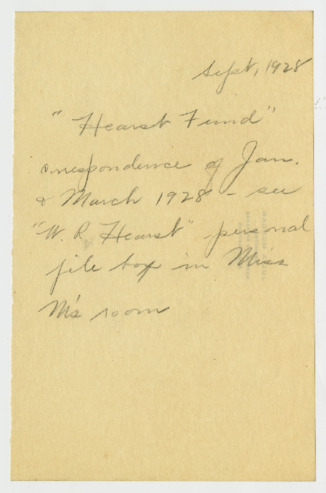 Sept, 1928
"Hearst Fund"
correspondence of Jan.
& March 1928 - see
"W. R. Hearst" personal
file box in Miss
M's room